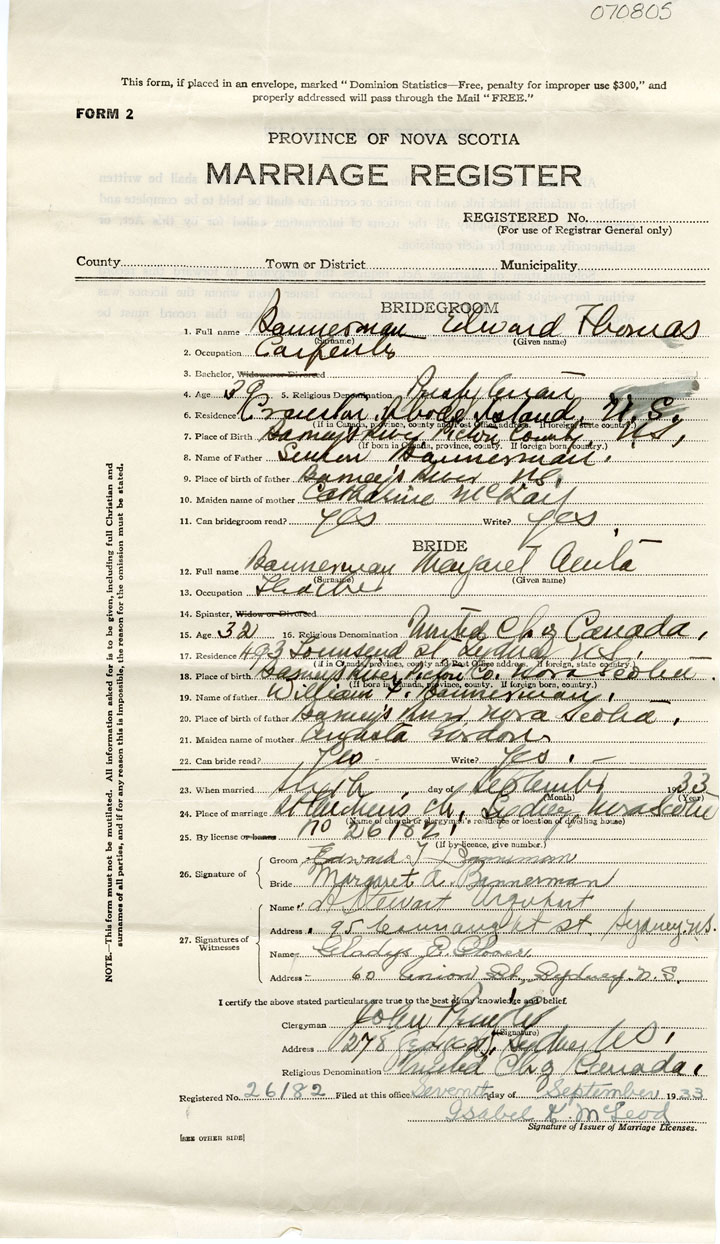 070805
This form, if placed in an envelope, marked "Dominion Statistics—Free, penalty for improper use $300," and
properly addressed will pass through the Mail "FREE."
FORM 2
PROVINCE OF NOVA SCOTIA
MARRIAGE REGISTER
REGISTERED No.
(For use of Registrar General only)
County Town or District Municipality
BRIDEGROOM
1. Full name Bannerman Edward Thomas
(Surname) (Given name)
2. Occupation Carpenter
3. Bachelor, Widower or Divorced
4. Age 39 5. Religious Denomination Presbyterian
6. Residence Rhode Island, U.S.
(If in Canada, province, county and Post Office address. If foreign state country)
7. Place of Birth Barney's River Pictou County, N.S,
(If born in Canada, province, county. If foreign born, country.)
8. Name of Father Bannerman.
9. Place of birth of father Barney's River N.S.
10. Maiden name of mother Catherine McKay
11. Can bridegroom read? yes Write? yes,
BRIDE
12. Full name Bannerman Margaret
(Surname) (Given name)
13. Occupation Teacher
14. Spinster, Widow or Divorced
15. Age 32 16. Religious Denomination United Ch of Canada,
17. Residence 493 Townsend St Sydney N.S.
(If in Canada, province, county and Post Office address. If foreign, state country.)
18. Place of birth Barney's River, Pictou Co. Nova Scotia.
(If born in Canada, province, county. If foreign born, country.)
19. Name of father William Bannerman,
20. Place of birth of father Barney's River Nova Scotia,
21. Maiden name of mother Gordon.
22. Can bride read? Yes Write? Yes.
23. When married sixth day of September 1933
(Month) (Year)
24. Place of marriage St Ch, Sydney, Nova Scotia
(Name of church or clergyman's residence or location of dwelling house)
25. By license or banns no 26182,
(If by licence, give number.)
26. Signature of
Groom Edward T Bannerman
Bride Margaret A. Bannerman
27. Signatures of Witnesses
Name Stewart Urquhart
Address 95 Connaught St, Sydney N.S.
Name Gladys
Address 60 Union St., Sydney N.S.
I certify the above stated particulars are true to the best of my knowledge and belief.
Clergyman John
(Signature)
Address 278 Sydney N.S,
Religious Denomination United Ch of Canada,
Registered No. 26182 Filed at this office Seventh day of September 1933
Isabel K. McLeod
Signature of Issuer of Marriage Licenses.
[SEE OTHER SIDE]
NOTE—This form must not be mutilated. All information asked for is to be given, including full Christian and
surnames of all parties, and if for any reason this is impossible, the reason for the omission must be stated.